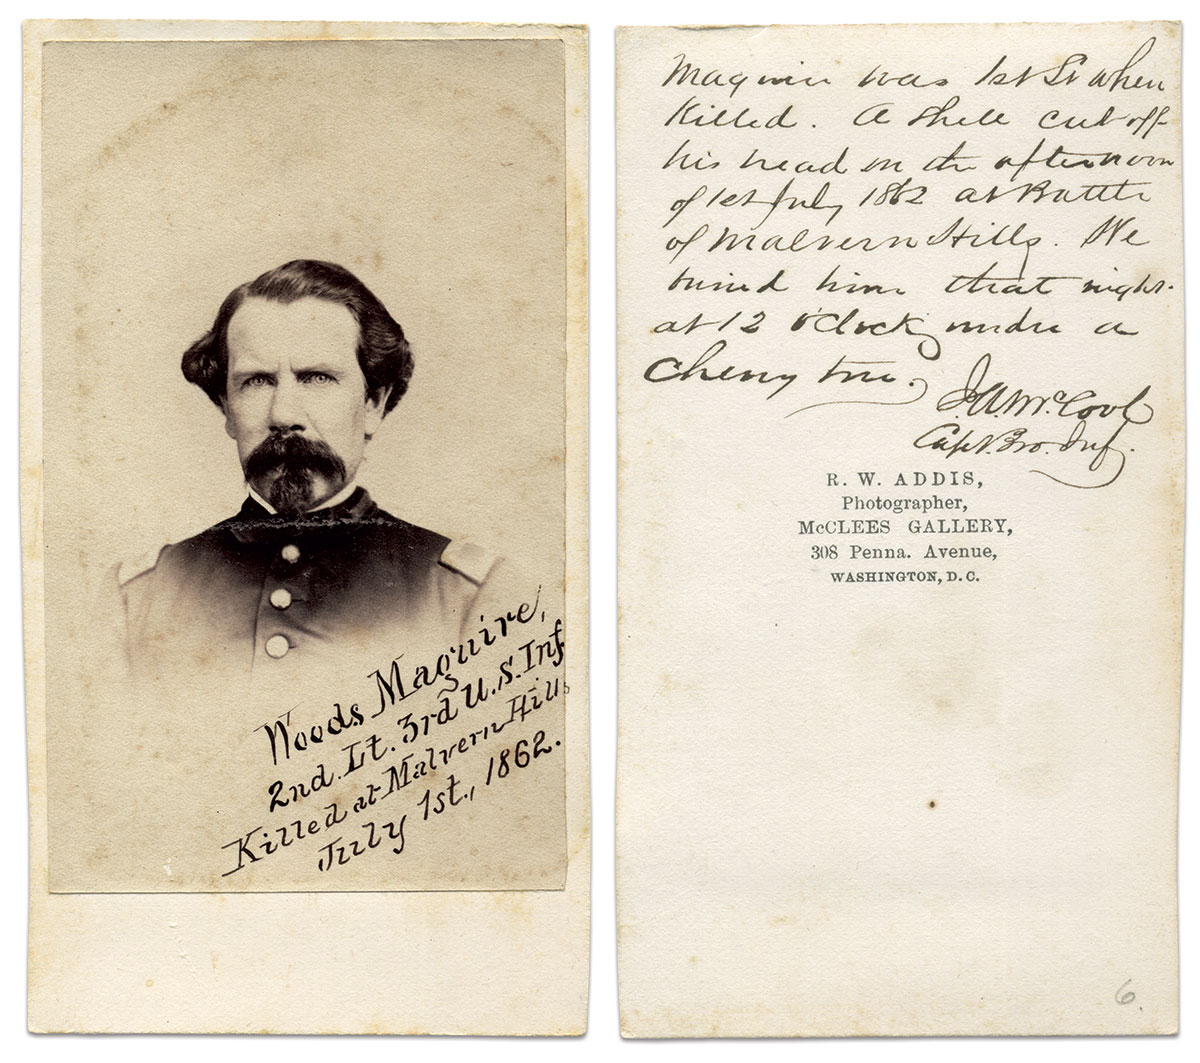 Woods Maguire,
2nd. Lt. 3rd U.S. Inf
Killed at Malvern Hills
July 1st., 1862.
Maguire was 1st Lt when
Killed. A Shell cut off
his head on the afternoon
of 1st July 1862 at Battle
of Malvern Hills. We
buried him that night
at 12 o'clock under a
cherry tree.
J.A. McCool
Capt. Inf.
R. W. ADDIS,
Photographer,
McCLEES GALLERY,
308 Penna. Avenue,
WASHINGTON, D.C.
6